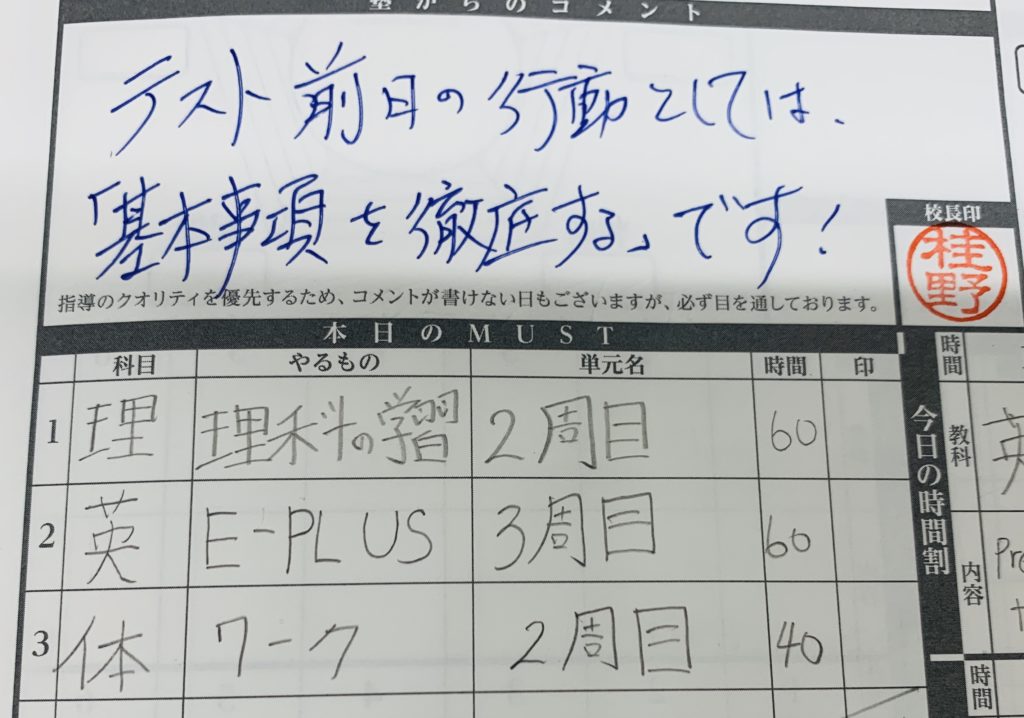 塾からのコメント
テスト前日の行動としては、
「基本事項を徹底する」です!
指導のクオリティを優先するため、コメントが書けない日もございますが、必ず目を通しております。
校長印
桂野
本日のMUST
科目 やるもの 単元名 時間 印
1 理 理科の学習 2周目 60
2 英 E-PLUS 3周目 60
3 体 ワーク 2周目 40
今日の時間割
時間
教科 英
内容
時間